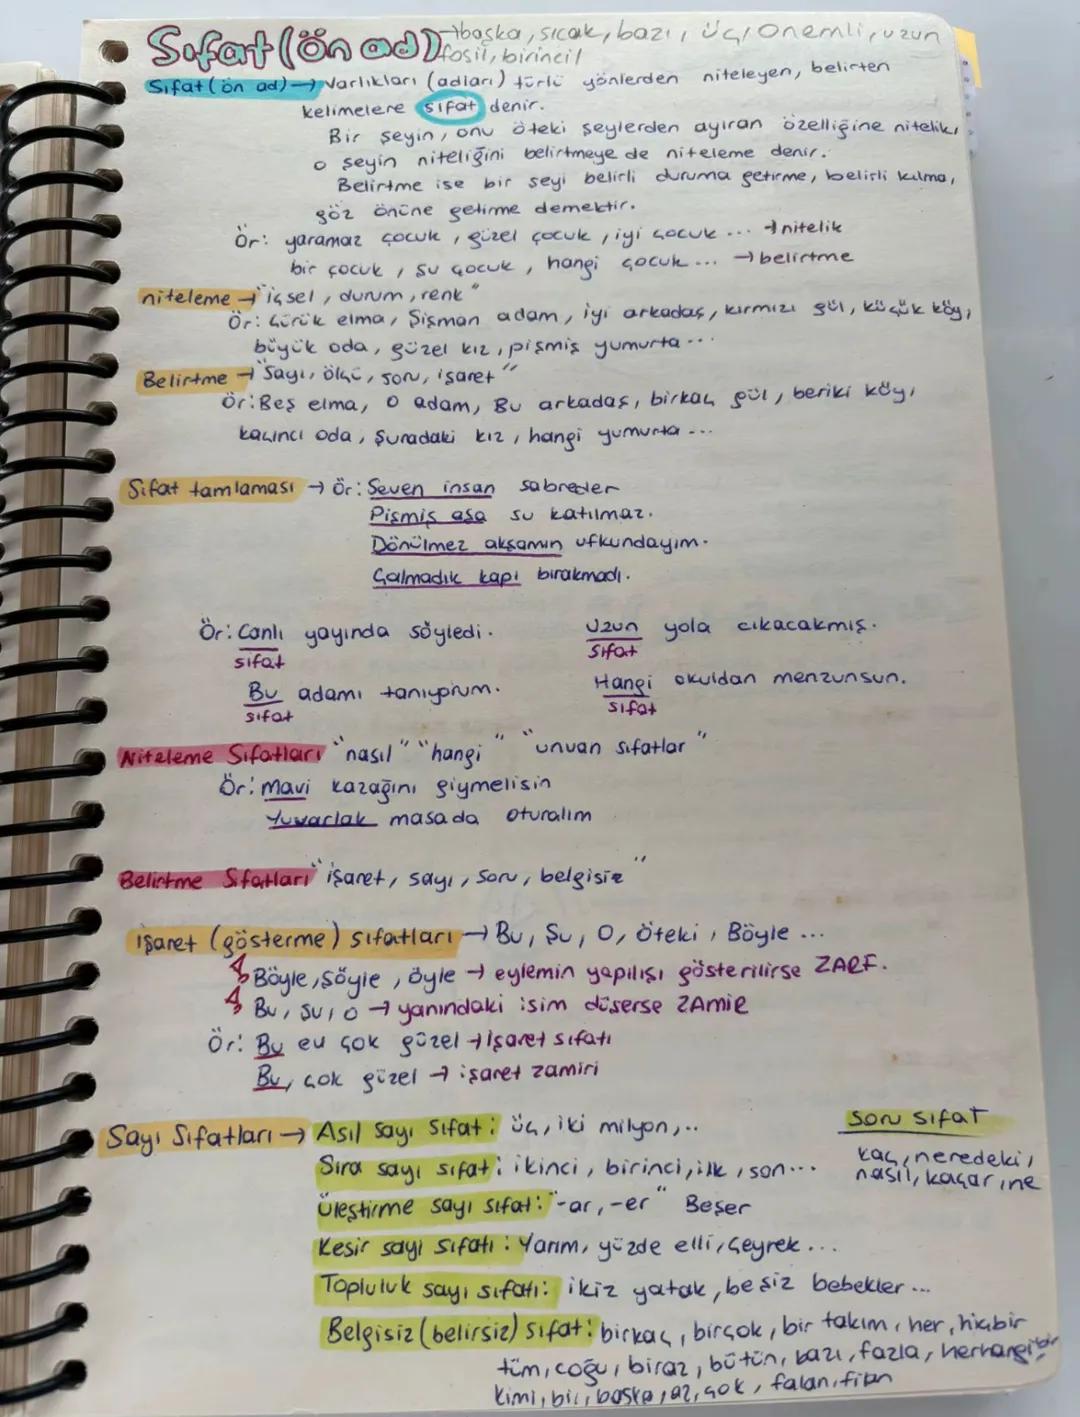 Sıfat (ön ad) →başka, sıcak, bazı, üç, önemli, uzun
fosil, birincil
Sıfat (ön ad) → Varlıkları (adları) türlü yönlerden niteleyen, belirten
kelimelere sıfat denir.
Bir şeyin, onu öteki şeylerden ayıran özelliğine nitelik,
o şeyin niteliğini belirtmeye de niteleme denir.
Belirtme ise bir şeyi belirli duruma getirme, belirli kılma,
göz önüne getirme demektir.
Ör: yaramaz çocuk, güzel çocuk, iyi çocuk... →nitelik
bir çocuk, şu çocuk, hangi çocuk... →belirtme
niteleme → "içsel, durum, renk"
Ör: Çürük elma, Şişman adam, iyi arkadaş, kırmızı gül, küçük köy,
büyük oda, güzel kız, pişmiş yumurta...
Belirtme → "Sayı, ölçü, soru, işaret"
Ör: Beş elma, O adam, Bu arkadaş, birkaç gül, beriki köy,
kaçıncı oda, Şuradaki kız, hangi yumurta...
Sıfat tamlaması → Ör: Seven insan sabreder
Pişmiş aşa su katılmaz.
Dönülmez akşamın ufkundayım.
Çalmadık kapı bırakmadı.
Ör: Canlı yayında söyledi. Uzun yola cıkacakmış.
sıfat Sıfat
Bu adamı tanıyorum. Hangi okuldan menzunsun.
sıfat sıfat
Niteleme Sıfatları "nasıl" "hangi" "unvan sıfatlar"
Ör: Mavi kazağını giymelisin
Yuvarlak masada oturalım
Belirtme Sıfatları "işaret, sayı, soru, belgisiz"
işaret (gösterme) sıfatları → Bu, Şu, O, Öteki, Böyle ...
Böyle, şöyle, öyle → eylemin yapılışı gösterilirse ZARF.
Bu, şu, o → yanındaki isim düşerse ZAMİR
Ör: Bu ev çok güzel → İşaret sıfatı
Bu, çok güzel → işaret zamiri
Sayı Sıfatları → Asıl sayı sıfat: üç, iki milyon,..
Sıra sayı sıfat: ikinci, birinci, ilk, son...
Üleştirme sayı sıfat: "-ar, -er" Beşer
Kesir sayı sıfatı: Yarım, yüzde elli, çeyrek...
Topluluk sayı sıfatı: ikiz yatak, beşiz bebekler...
Belgisiz (belirsiz) sıfat: birkaç, birçok, bir takım, her, hiçbir
tüm, çoğu, biraz, bütün, bazı, fazla, herhangi bir
kimi, bir, başka, az, çok, falan, filan
soru sıfat
kaç, neredeki,
nasıl, kaçar, ne